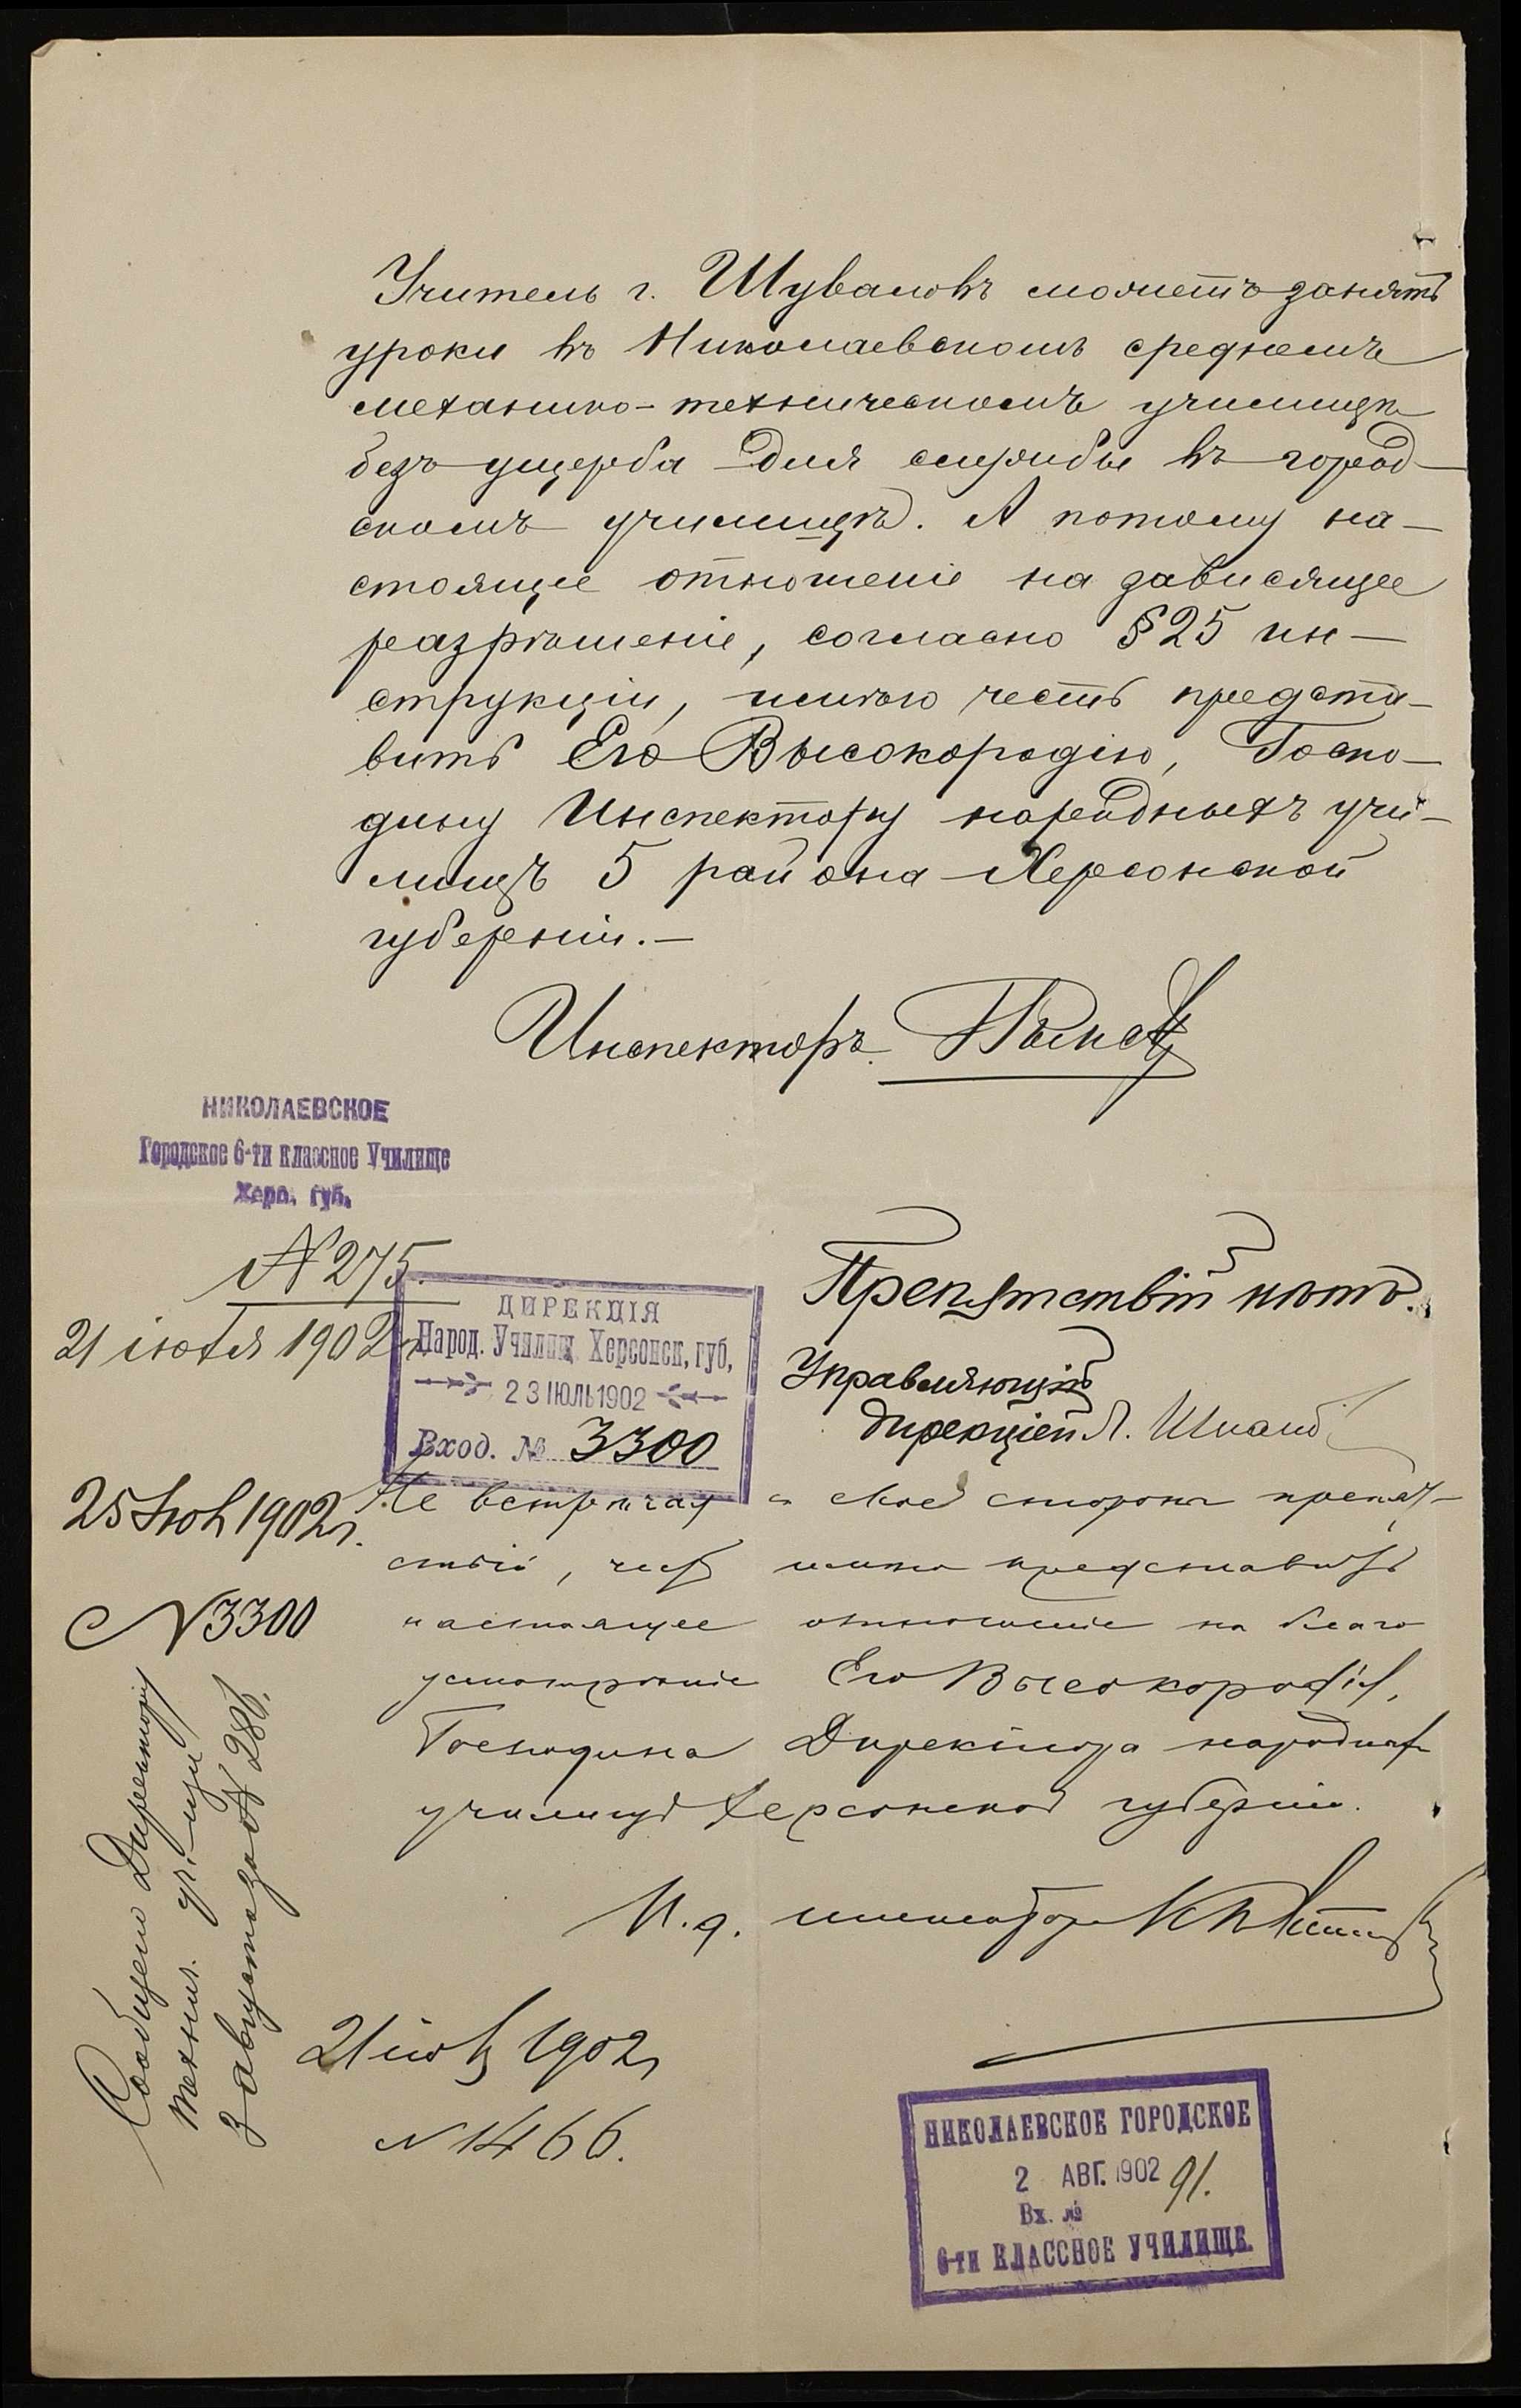 Учитель г. Шуваловъ можетъ занять
уроки въ Николаевскомъ среднемъ
механико-техническомъ училищѣ
безъ ущерба для службы въ город-
скомъ училищѣ. А потому на-
стоящее отношеніе на зависящее
разрѣшеніе, согласно §25 ин-
струкціи, имѣю честь предста-
вить Его Высокородію, Госпо-
дину Инспектору народныхъ учи-
лищъ 5 района Херсонской
губерніи.—
Инспекторъ
НИКОЛАЕВСКОЕ
Городское 6-ти классное Училище
Херс. губ.
№ 275.
21 іюля 1902 г.
ДИРЕКЦІЯ
Народ. Училищ. Херсонск. губ.
23 ІЮЛЬ 1902
Вход. № 3300
Препятствій нѣтъ.
Управляющій
Дирекціей Л.
25 Іюл 1902 г.
№ 3300
Не встрѣчая съ своей стороны препят-
ствій, честь имѣю представить
настоящее отношеніе на благо
усмотрѣніе Его Высокородія,
Господина Директора народных
училищъ Херсонской губерніи.
И. д. инспектора
21 іюля 1902 г.
№ 1466.
Сообщено Директору
технич. уч-ща
3 августа за № 286.
НИКОЛАЕВСКОЕ ГОРОДСКОЕ
2 АВГ. 1902
Вх. № 91.
6-ти КЛАССНОЕ УЧИЛИЩЕ.